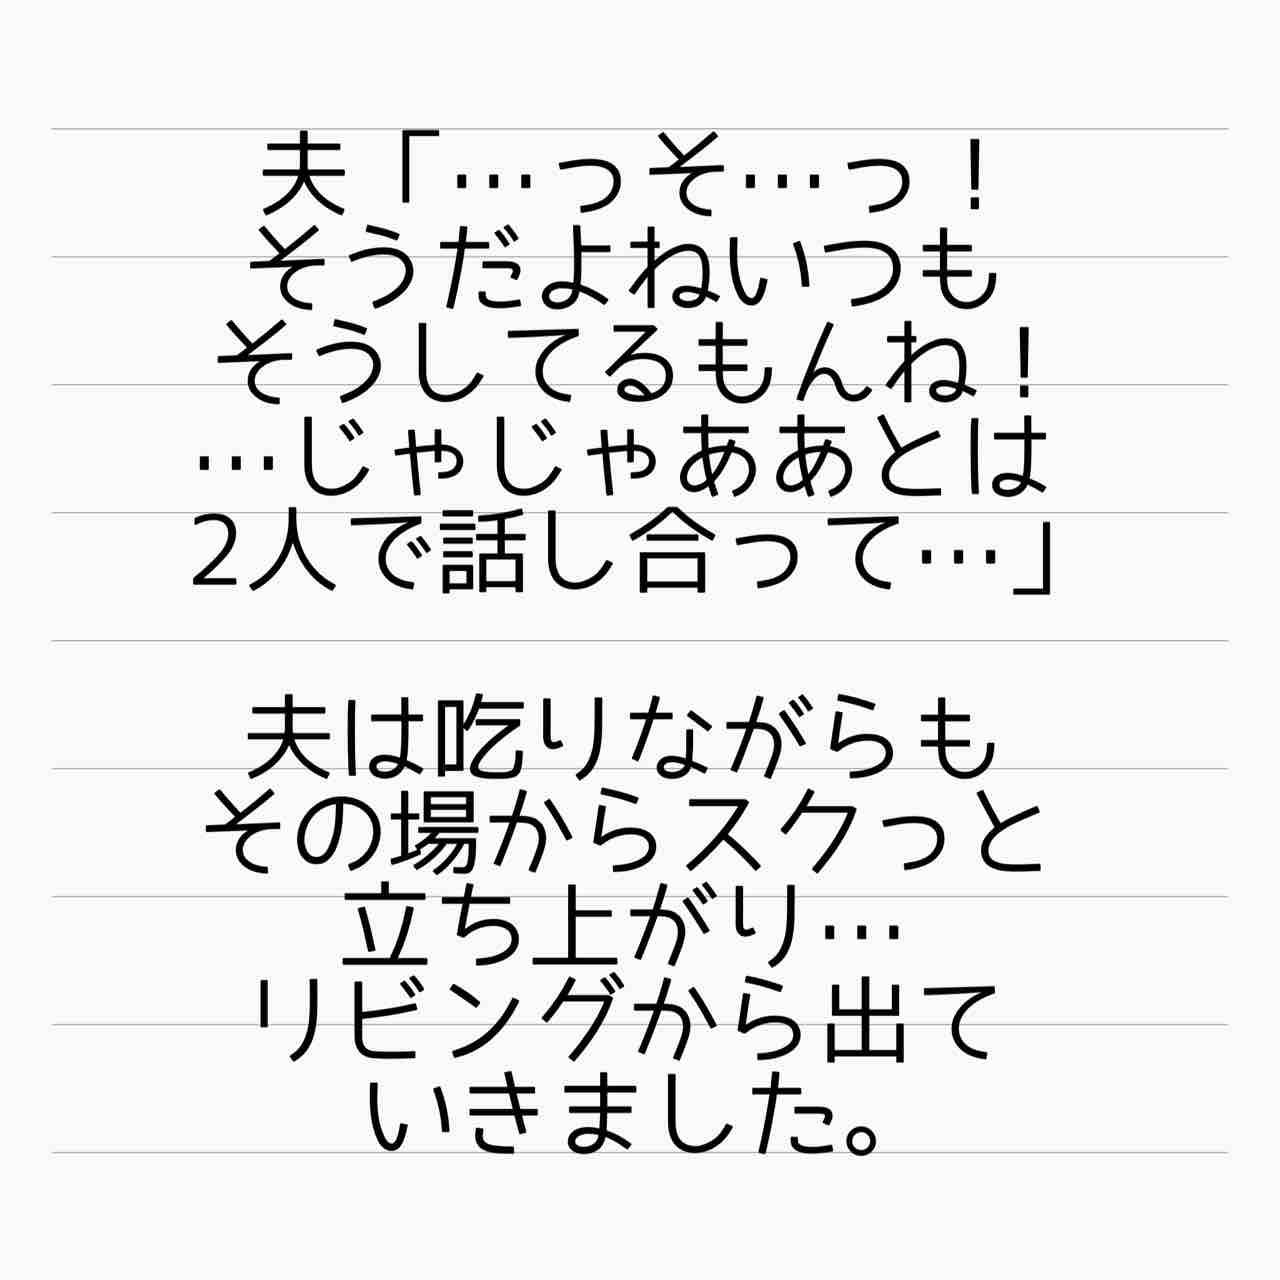 夫「…っそ…っ！
そうだよねいつも
そうしてるもんね！
…じゃじゃああとは
2人で話し合って…」
夫は吃りながらも
その場からスクっと
立ち上がり…
リビングから出て
いきました。